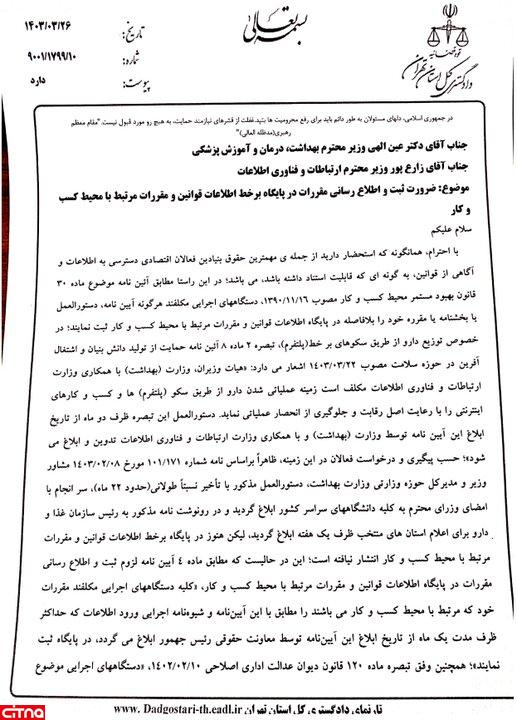 بسمه تعالی
قوه قضائیه
دادگستری کل استان تهران
تاریخ: ۱۴۰۳/۰۳/۲۶
شماره: ۹۰۰۱/۱۷۹۹/۱۰
پیوست: دارد
در جمهوری اسلامی، دلهای مسئولان به طور دائم باید برای رفع محرومیت ها بتپد. غفلت از قشرهای نیازمند حمایت، به هیچ رو مورد قبول نیست. "مقام معظم
رهبری(مدظله العالی)"
جناب آقای دکتر عین الهی وزیر محترم بهداشت، درمان و آموزش پزشکی
جناب آقای زارع پور وزیر محترم ارتباطات و فناوری اطلاعات
موضوع: ضرورت ثبت و اطلاع رسانی مقررات در پایگاه برخط اطلاعات قوانین و مقررات مرتبط با محیط کسب
و کار
سلام علیکم
با احترام، همانگونه که استحضار دارید از جمله ی مهمترین حقوق بنیادین فعالان اقتصادی دسترسی به اطلاعات و
آگاهی از قوانین، به گونه ای که قابلیت استناد داشته باشد، می باشد؛ در این راستا مطابق آئین نامه موضوع ماده ۳۰
قانون بهبود مستمر محیط کسب و کار مصوب ۱۳۹۰/۱۱/۱۶، دستگاههای اجرایی مکلفند هرگونه آیین نامه، دستورالعمل
یا بخشنامه یا مقرره خود را بلافاصله در پایگاه اطلاعات قوانین و مقررات مرتبط با محیط کسب و کار ثبت نمایند؛ در
خصوص توزیع دارو از طریق سکوهای بر خط(پلتفرم)، تبصره ۲ ماده ۸ آئین نامه حمایت از تولید دانش بنیان و اشتغال
آفرین در حوزه سلامت مصوب ۱۴۰۳/۰۳/۲۲ اشعار می دارد: «هیات وزیران، وزارت (بهداشت) با همکاری وزارت
ارتباطات و فناوری اطلاعات مکلف است زمینه عملیاتی شدن دارو از طریق سکو (پلتفرم) ها و کسب و کارهای
اینترنتی را با رعایت اصل رقابت و جلوگیری از انحصار عملیاتی نماید. دستورالعمل این تبصره ظرف دو ماه از تاریخ
ابلاغ این آیین نامه توسط وزارت (بهداشت) و با همکاری وزارت ارتباطات و فناوری اطلاعات تدوین و ابلاغ می
شود»؛ حسب پیگیری و درخواست فعالان در این زمینه، ظاهراً براساس نامه شماره ۱۰۱/۱۷۱ مورخ ۱۴۰۳/۰۲/۰۸ مشاور
وزیر و مدیرکل حوزه وزارتی وزارت بهداشت، دستورالعمل مذکور با تأخیر نسبتاً طولانی(حدود ۲۲ ماه)، سر انجام با
امضای وزرای محترم به کلیه دانشگاههای سراسر کشور ابلاغ گردید و در رونوشت نامه مذکور به رئیس سازمان غذا و
دارو برای اعلام استان های منتخب ظرف یک هفته ابلاغ گردید، لیکن هنوز در پایگاه برخط اطلاعات قوانین و مقررات
مرتبط با محیط کسب و کار انتشار نیافته است؛ این در حالیست که مطابق ماده ۴ آیین نامه لزوم ثبت و اطلاع رسانی
مقررات در پایگاه اطلاعات قوانین و مقررات مرتبط با محیط کسب و کار، «کلیه دستگاههای اجرایی مکلفند مقررات
خود که مرتبط با محیط کسب و کار می باشند را مطابق با این آیین‌نامه و شیوه‌نامه اجرایی ورود اطلاعات که حداکثر
ظرف مدت یک ماه از تاریخ ابلاغ این آیین‌نامه توسط معاونت حقوقی رئیس جمهور ابلاغ می گردد، در پایگاه ثبت
نمایند»؛ همچنین وفق تبصره ماده ۱۲۰ قانون دیوان عدالت اداری اصلاحی ۱۴۰۲/۰۲/۱۰، «دستگاههای اجرایی موضوع
تارنمای دادگستری کل استان تهران www. Dadgostari-th.eadl.ir
CITNA